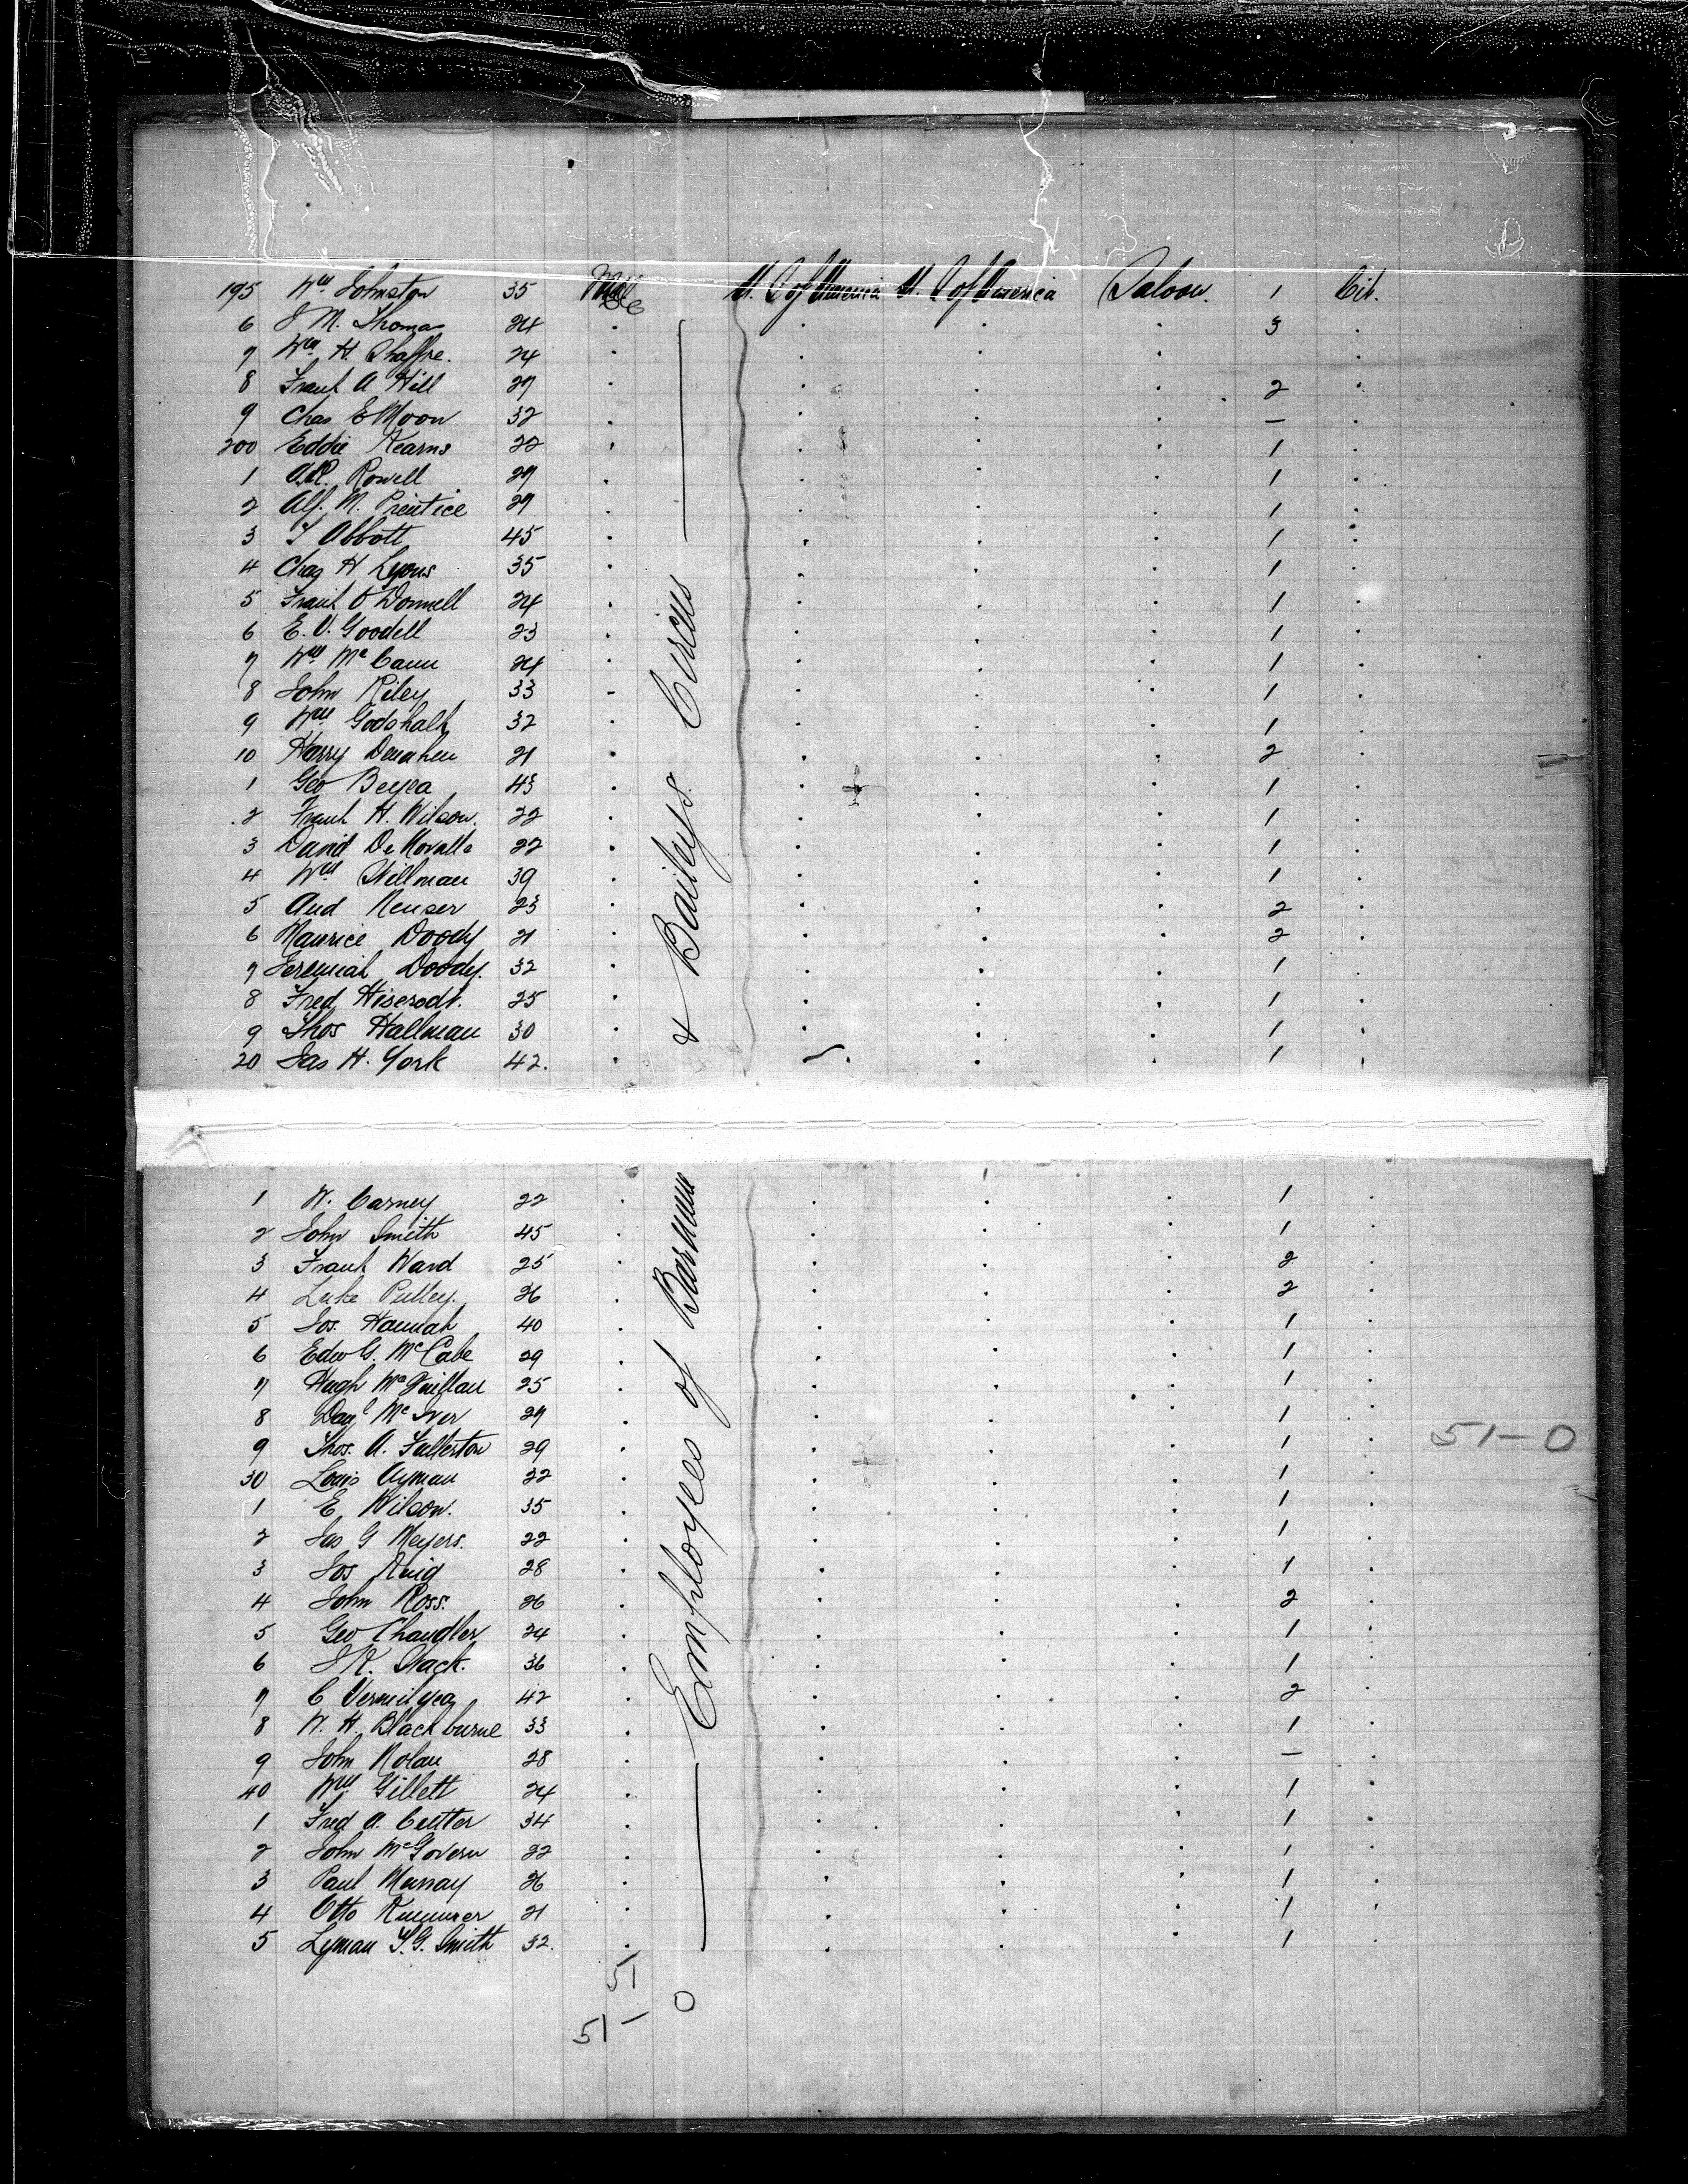 195 Wm Johnston 35 Male U. S of America U. S of America Saloon. 1 Cit.
6 J M. Thomas 24 . . . . 3 .
7 Wm H. Shaffre. 24 . . . . .
8 Frank A Hill 27 . . . . 2 .
9 Chas E Moon 32 . . . . — .
200 Eddie Kearns 22 . . . . 1 .
1 Rowell 27 . . . . 1 .
2 Alf. M. Prentice 27 . . . . 1 .
3 T Abbott 45 . . . . 1 .
4 Chas H Lyons 35 . . . . 1 .
5 Frank O'Donnell 24 . . . . 1 .
6 E. V. Goodell 23 . . . . 1 .
7 Wm McCann 24 . . . . 1 .
8 John Riley 33 - . . . 1 .
9 Wm Godshalk 32 . . . . 1 .
10 Harry Denahen 21 . . . . 2 .
1 Geo Beyea 43 . . . . 1 .
2 Frank H. Wilson. 22 . . . . 1 .
3 David 22 . . . . 1 .
4 Wm Stillman 39 . . . . 1 .
5 Aud Neuser 23 . . . . 2 .
6 Maurice Doody 21 . . . . 2 .
7 Jeremiah Doody. 32 . . . . 1 .
8 Fred Hiserodt. 25 . . . . 1 .
9 Thos Hallman 30 . . . . 1 .
20 Jas H. York 42. . . . . 1 .
1 W. Carney 22 . . . . 1 .
2 John Smith 45 . . . . 1 .
3 Frank Ward 25 . . . . 2 .
4 Luke Pulley. 26 . . . . 2 .
5 Jos. Hannah 40 . . . . 1 .
6 Edw G. McCabe 29 . . . . 1 .
7 Hugh 25 . . . . 1 .
8 McIver 27 . . . . 1 .
9 Thos. A. Fullerton 29 . . . . 1 . 51–0
30 Louis Ayman 32 . . . . 1 .
1 E Wilson. 35 . . . . 1 .
2 Jas G Meyers. 22 . . . . 1 .
3 Jos Reig 28 . . . . 1 .
4 John Ross. 26 . . . . 2 .
5 Geo Chandler 24 . . . . 1 .
6 Slack. 36 . . . . 1 .
7 C Vermilyea 42 . . . . 2 .
8 W. H. Blackburne 33 . . . . 1 .
9 John Nolan 28 . . . . — .
40 Wm Gillett 24 . . . . 1 .
1 Fred A. Cutter 34 . . . . 1 .
2 John McGovern 22 . . . . 1 .
3 Paul Murray 26 . . . . 1 .
4 Otto 21 . . . . 1 .
5 Lyman S.G. Smith 32. . . . . 1 .
— Employees of Barnum & Baileys Circus —
51
51 – 0